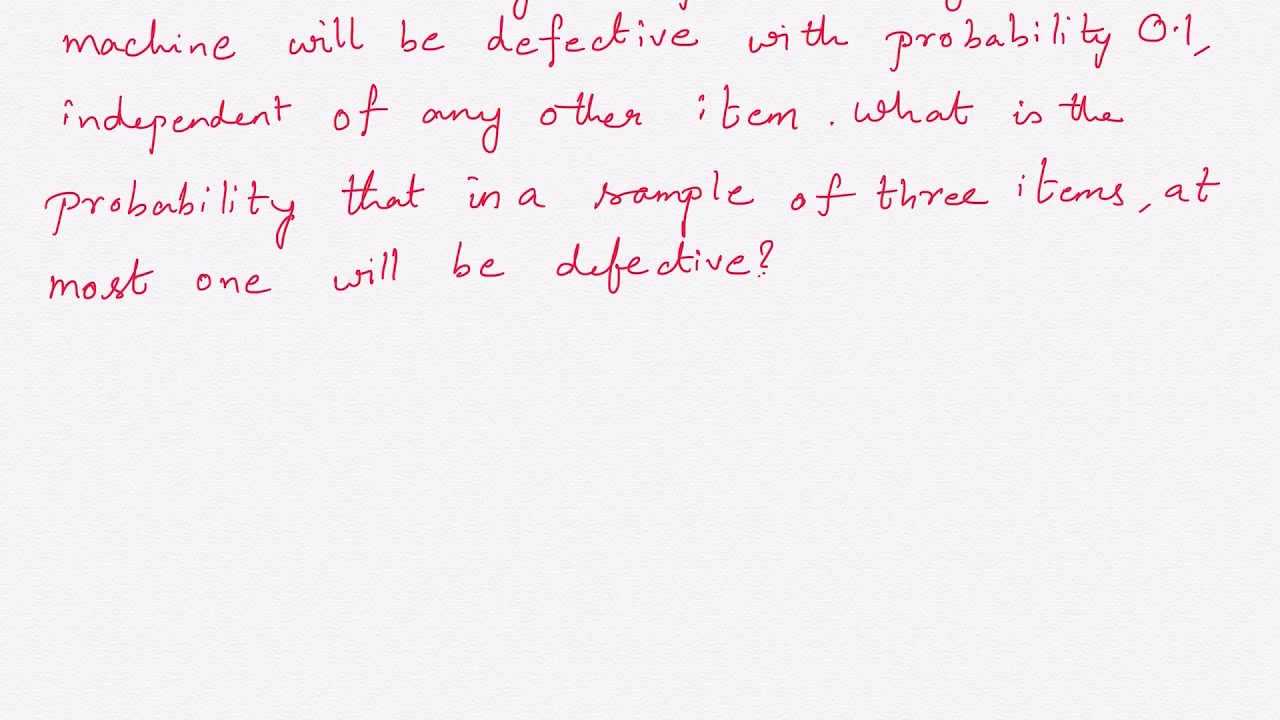 machine will be defective with probability 0.1,
independent of any other item. What is the
probability that in a sample of three items, at
most one will be defective?